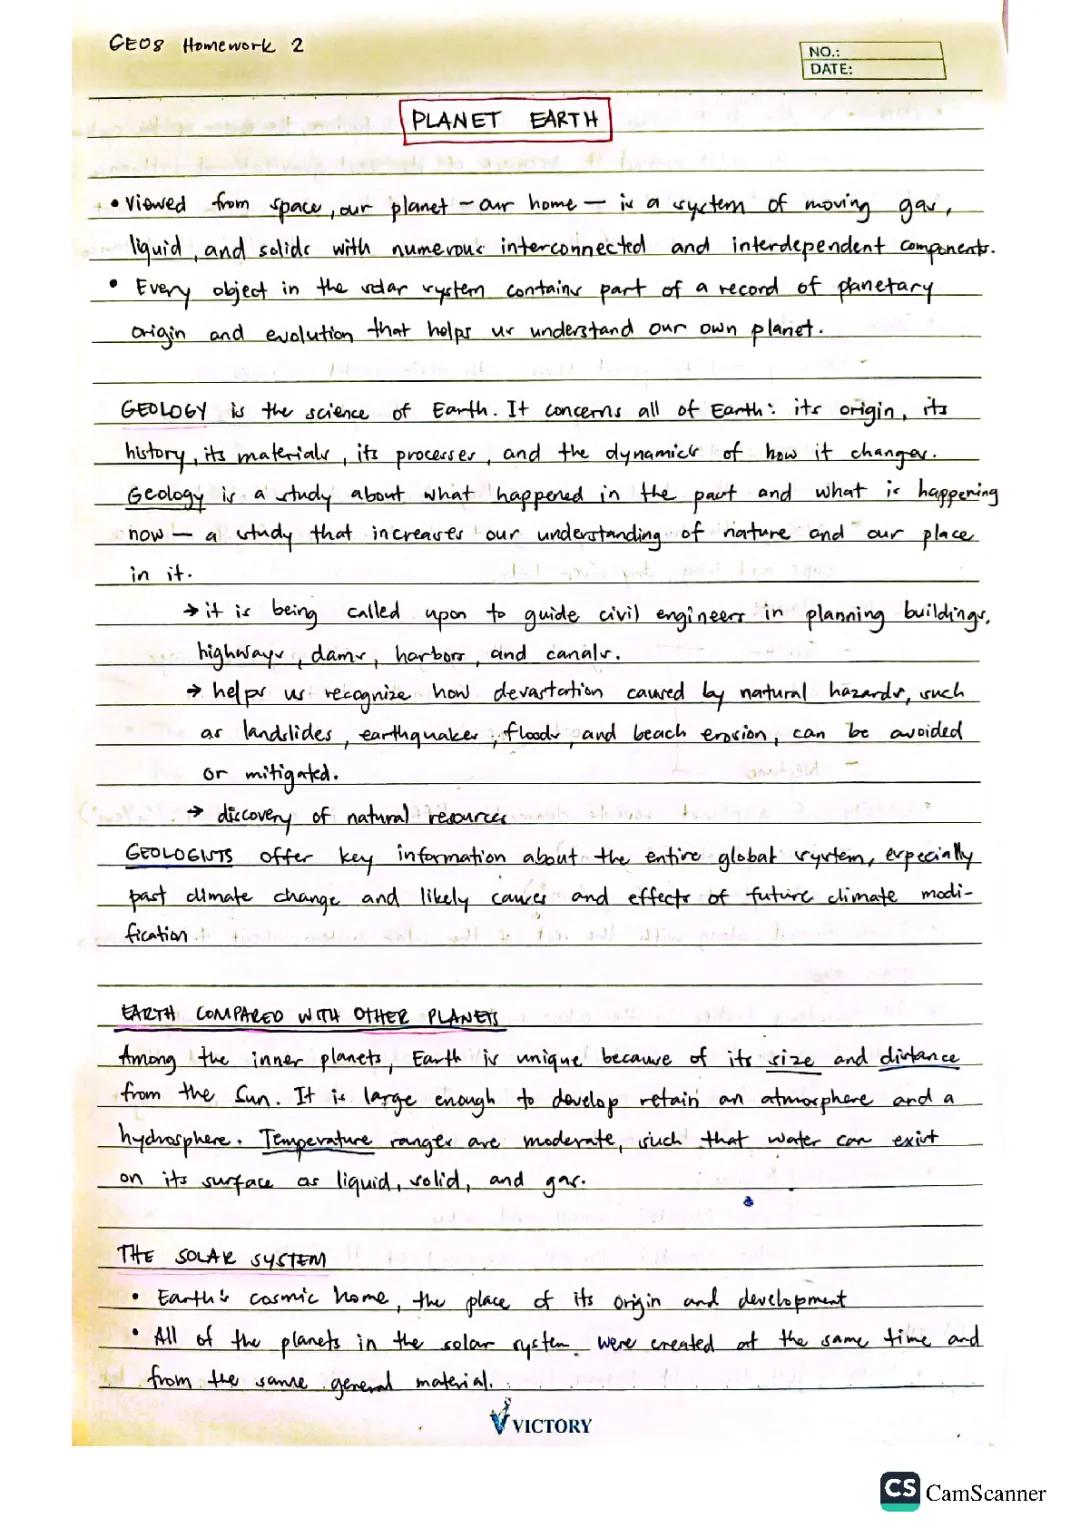 GEO8 Homework 2
NO.:
DATE:
PLANET EARTH
• Viewed from space, our planet — our home — is a system of moving gas,
liquid, and solids with numerous interconnected and interdependent components.
• Every object in the solar system contains part of a record of planetary
origin and evolution that helps us understand our own planet.
GEOLOGY is the science of Earth. It concerns all of Earth: its origin, its
history, its materials, its processes, and the dynamics of how it changes.
Geology is a study about what happened in the past and what is happening
now — a study that increases our understanding of nature and our place
in it.
→ it is being called upon to guide civil engineers in planning buildings,
highways, dams, harbors, and canals.
→ helps us recognize how devastation caused by natural hazards, such
as landslides, earthquakes, floods, and beach erosion, can be avoided
or mitigated.
→ discovery of natural resources
GEOLOGISTS offer key information about the entire global system, especially
past climate change and likely causes and effects of future climate modi-
fication.
EARTH COMPARED WITH OTHER PLANETS
Among the inner planets, Earth is unique because of its size and distance
from the Sun. It is large enough to develop retain an atmosphere and a
hydrosphere. Temperature ranges are moderate, such that water can exist
on its surface as liquid, solid, and gas.
THE SOLAR SYSTEM
• Earth's cosmic home, the place of its origin and development
• All of the planets in the solar system were created at the same time and
from the same general material.
VICTORY
CS CamScanner